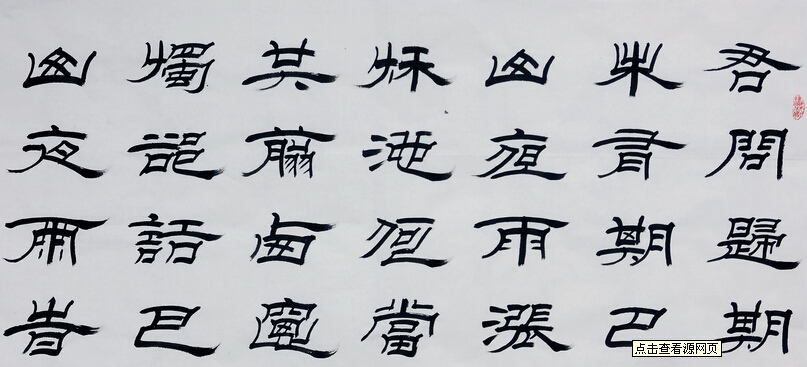 君問歸期
未有期巴
山夜雨漲
秋池何當
共翦西窗
燭卻話巴
山夜雨旹
点击查看源网页